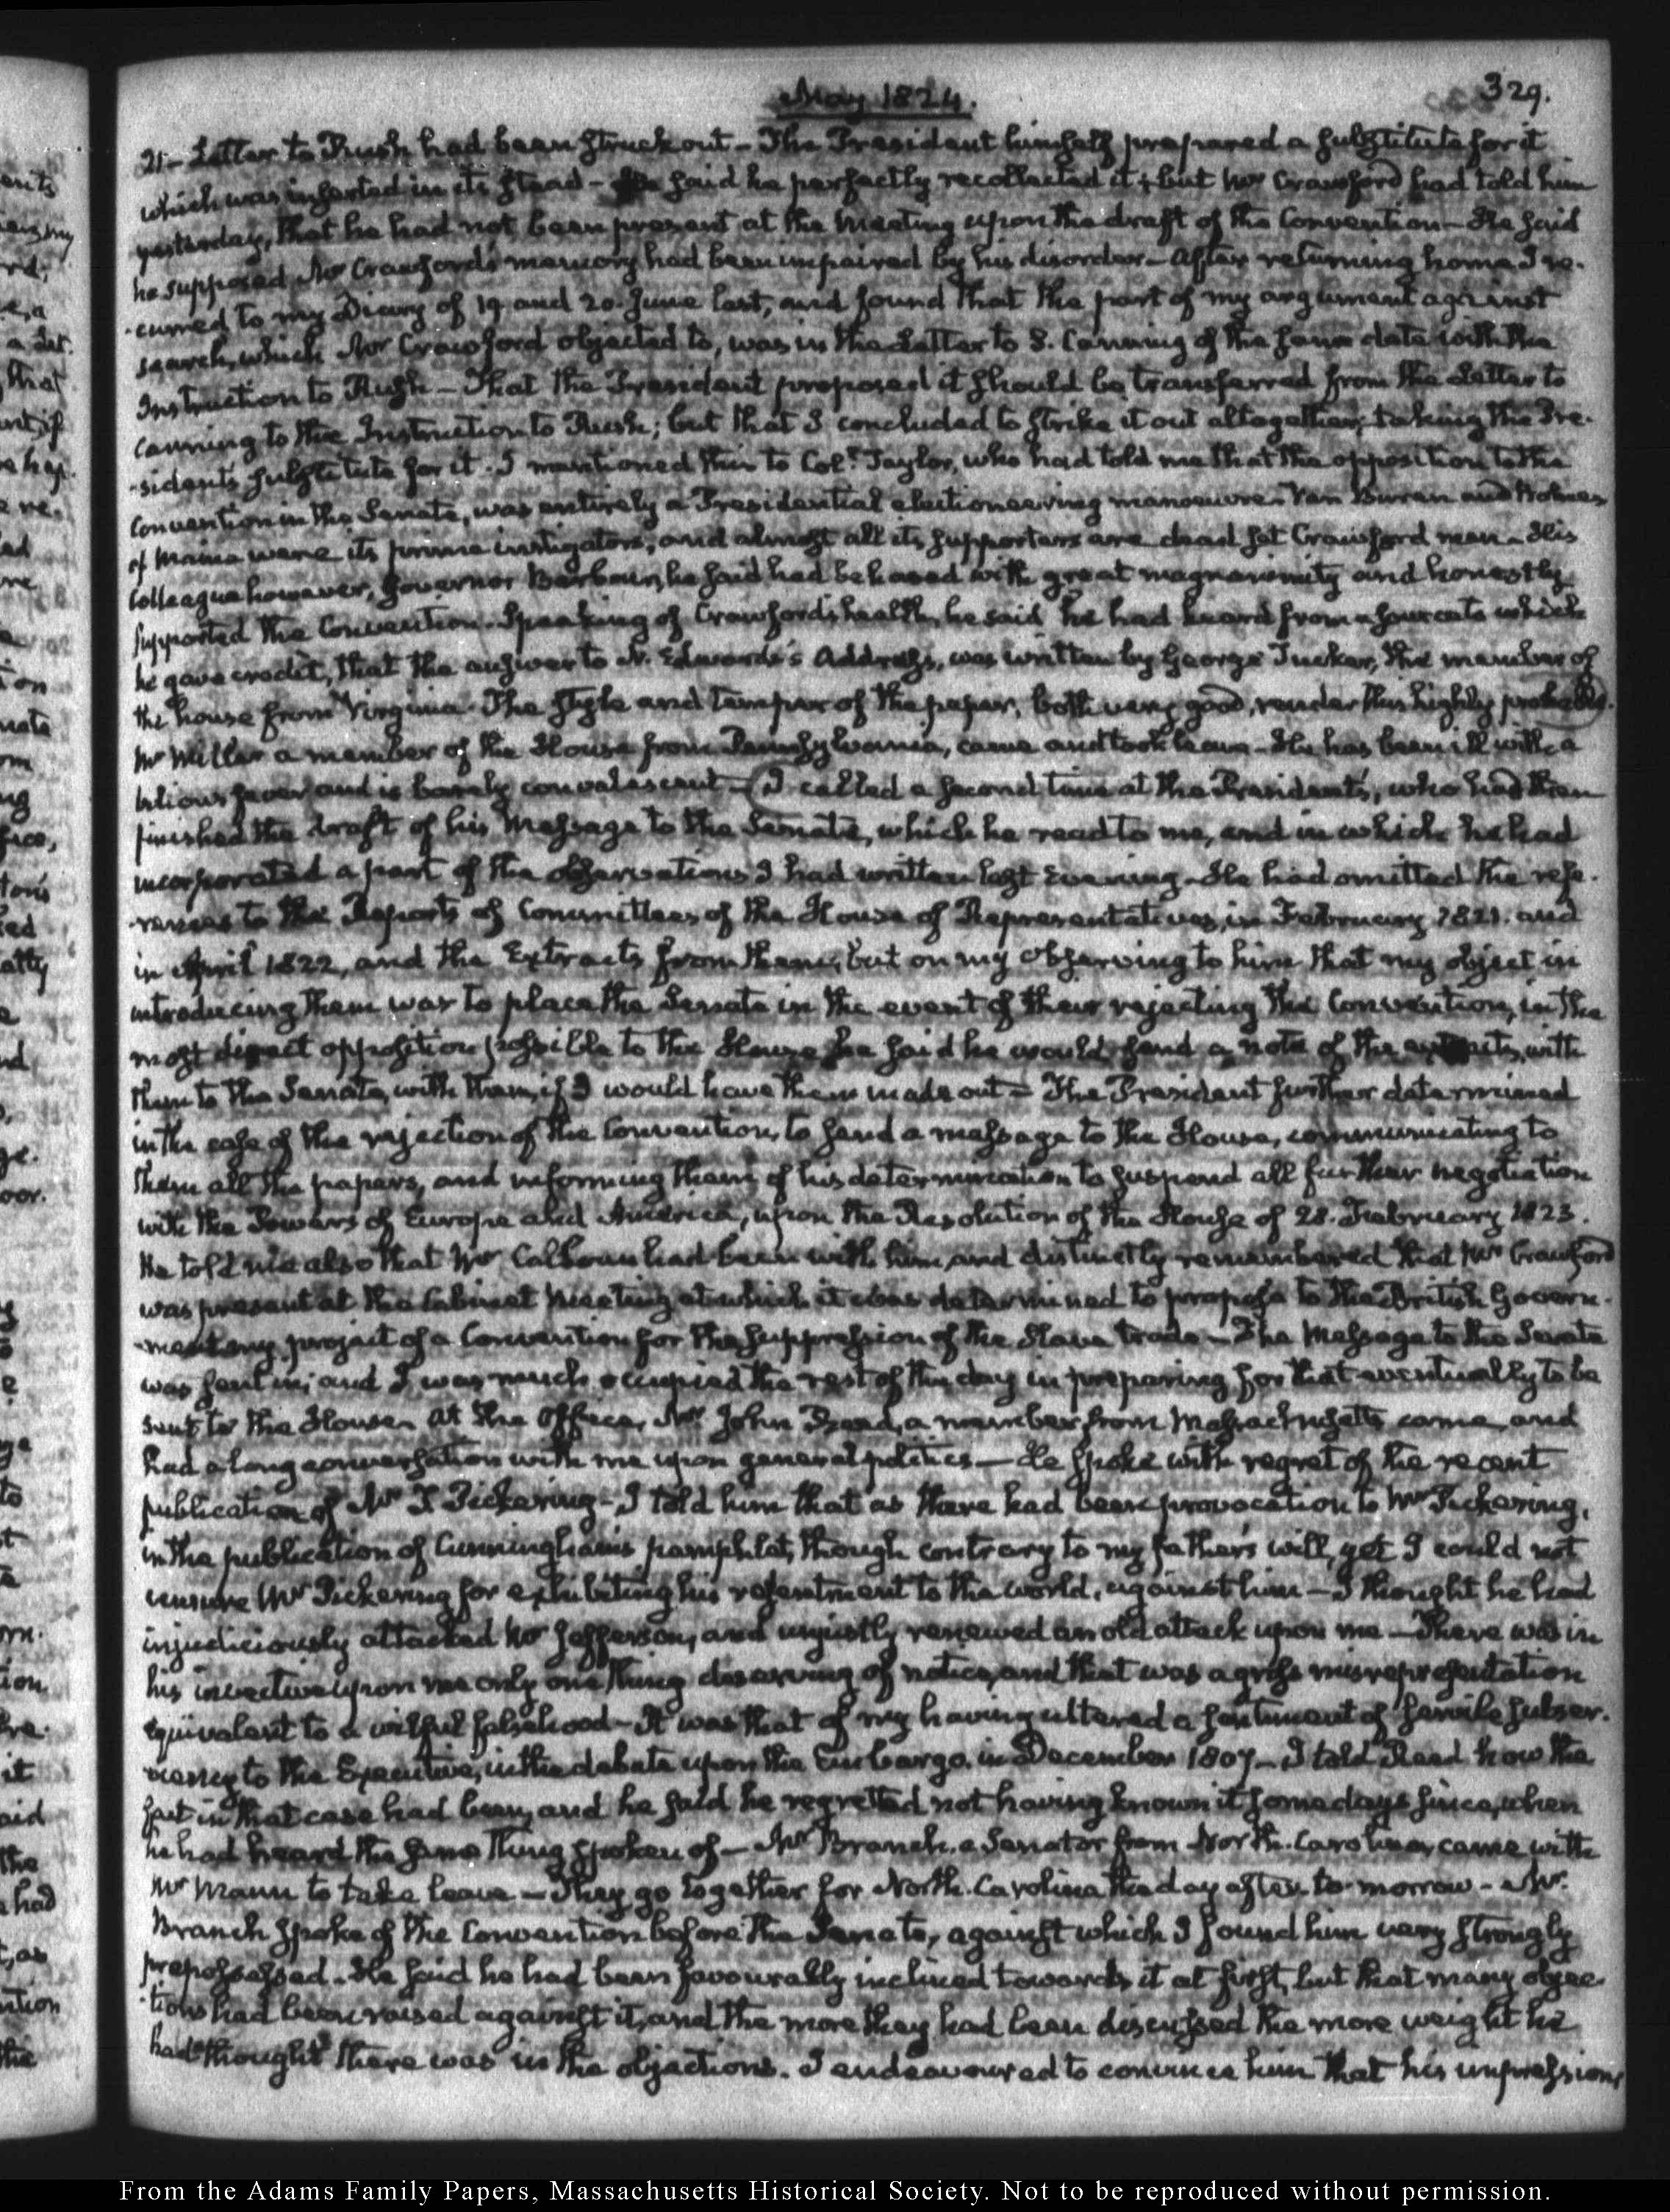 May 1824.
329.
21– Letter to Rush had been struck out – The President himself prepared a substitute for it
which was inserted in its stead – He said he perfectly recollected it; but Mr Crawford had told him
yesterday, that he had not been present at the meeting upon the draft of the Convention – He said
he supposed Mr Crawford's memory had been impaired by his disorder – After returning home I re-
-curred to my Diary of 19 and 20 June last, and found that the part of my argument against
search, which Mr Crawford objected to, was in the Letter to S. Canning of the same date with the
Instruction to Rush – That the President proposed it should be transferred from the Letter to
Canning to the Instruction to Rush; but that I concluded to strike it out altogether, taking the Pre-
-sident's substitute for it. I mentioned this to Coll. Taylor, who had told me that the opposition to the
Convention in the Senate, was entirely a Presidential electioneering manoeuvre – Van Buren and Holmes
of Maine were its prime instigators, and almost all its supporters are dead set Crawford men – His
Colleague however, Governor Barbour, he said had behaved with great magnanimity and honestly
supported the Convention. Speaking of Crawford's health, he said he had heard from a source to which
he gave credit, that the answer to N. Edwards's Address, was written by George Tucker, the member of
the house from Virginia. The style and temper of the paper, both very good, render this highly probable.
Mr Miller a member of the House from Pennsylvania, came and took leave – He has been ill with a
bilious fever and is barely convalescent – I called a second time at the President's, who had then
finished the draft of his Message to the Senate, which he read to me, and in which he had
incorporated a part of the observations I had written last Evening – He had omitted the refe-
-rences to the Reports of Committees of the House of Representatives, in February 1821. and
in April 1822, and the Extracts from them; but on my observing to him that my object in
introducing them was to place the Senate in the event of their rejecting the Convention, in the
most direct opposition possible to the House he said he would send a note of the extracts, with
them to the Senate, with them, if I would have them made out – The President further determined
in the case of the rejection of the Convention, to send a message to the House, communicating to
them all the papers, and informing them of his determination to suspend all further negotiation
with the Powers of Europe and America, upon the Resolution of the House of 28. February 1823.
He told me also that Mr Calhoun had been with him, and distinctly remembered that Mr Crawford
was present at the Cabinet Meeting at which it was determined to propose to the British Govern-
-ment my project of a Convention for the suppression of the Slave trade – The Message to the Senate
was sent in; and I was much occupied the rest of the day in preparing for that eventually to be
sent to the House – At the Office, Mr John Reed, a member from Massachusetts came, and
had a long conversation with me upon general politics – He spoke with regret of the recent
publication of Mr T. Pickering – I told him that as there had been provocation to Mr Pickering,
in the publication of Cunningham's pamphlet, though contrary to my father's will, yet I could not
censure Mr Pickering for exhibiting his resentment to the world, against him – I thought he had
injudiciously attacked Mr Jefferson, and unjustly renewed an old attack upon me – There was in
his invective upon me only one thing deserving of notice, and that was a gross misrepresentation
equivalent to a wilful falsehood – It was that of my having uttered a sentiment of servile subser-
viency to the Executive, in the debate upon the Embargo in December 1807 – I told Reed how the
fact in that case had been, and he said he regretted not having known it some days since, when
he had heard the same thing spoken of – Mr Branch, a Senator from North-Carolina, came with
Mr Mann to take leave – They go together for North-Carolina the day after to-morrow – Mr.
Branch spoke of the Convention before the Senate, against which I found him very strongly
prepossessed – He said he had been favourably inclined towards it at first, but that many objec-
-tions had been raised against it, and the more they had been discussed the more weight he
had thought there was in the objections. I endeavoured to convince him that his impressions
From the Adams Family Papers, Massachusetts Historical Society. Not to be reproduced without permission.